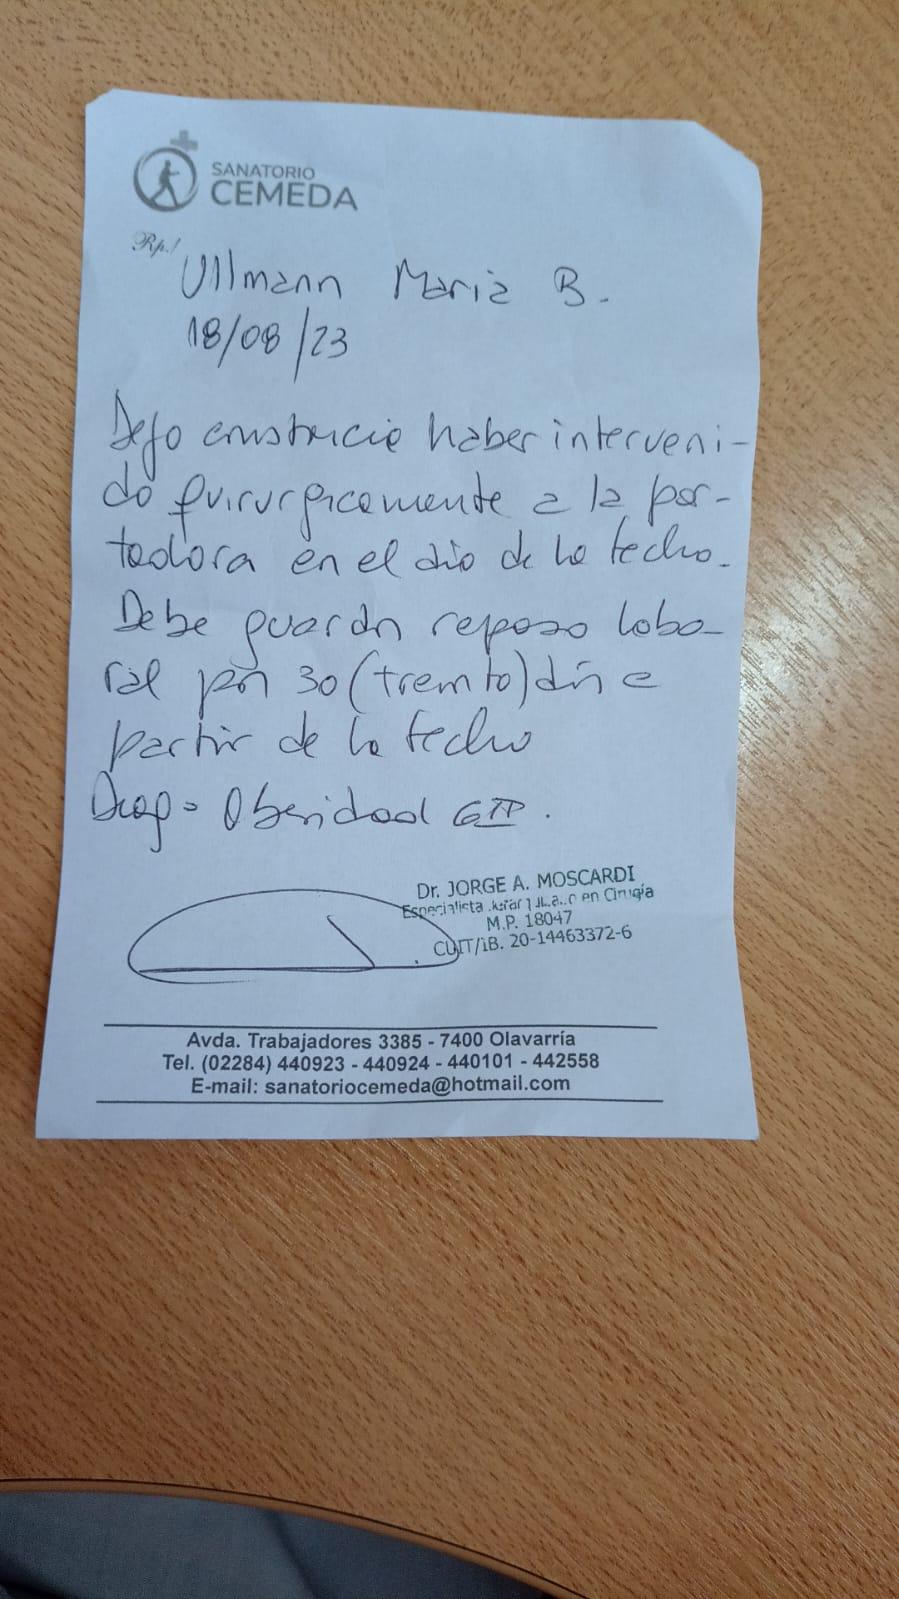 SANATORIO
CEMEDA
Rp./
Ullmann Maria B.
18/08/23
Dejo constancia haber interveni-
do quirurgicamente a la por-
tadora en el día de la fecha.
Debe guardar reposo labo-
ral por 30 (treinta) días a
partir de la fecha
Diag= Obesidad GIII.
Dr. JORGE A. MOSCARDI
Especialista en Cirugía
M.P. 18047
CUIT/IB. 20-14463372-6
Avda. Trabajadores 3385 - 7400 Olavarría
Tel. (02284) 440923 - 440924 - 440101 - 442558
E-mail: sanatoriocemeda@hotmail.com